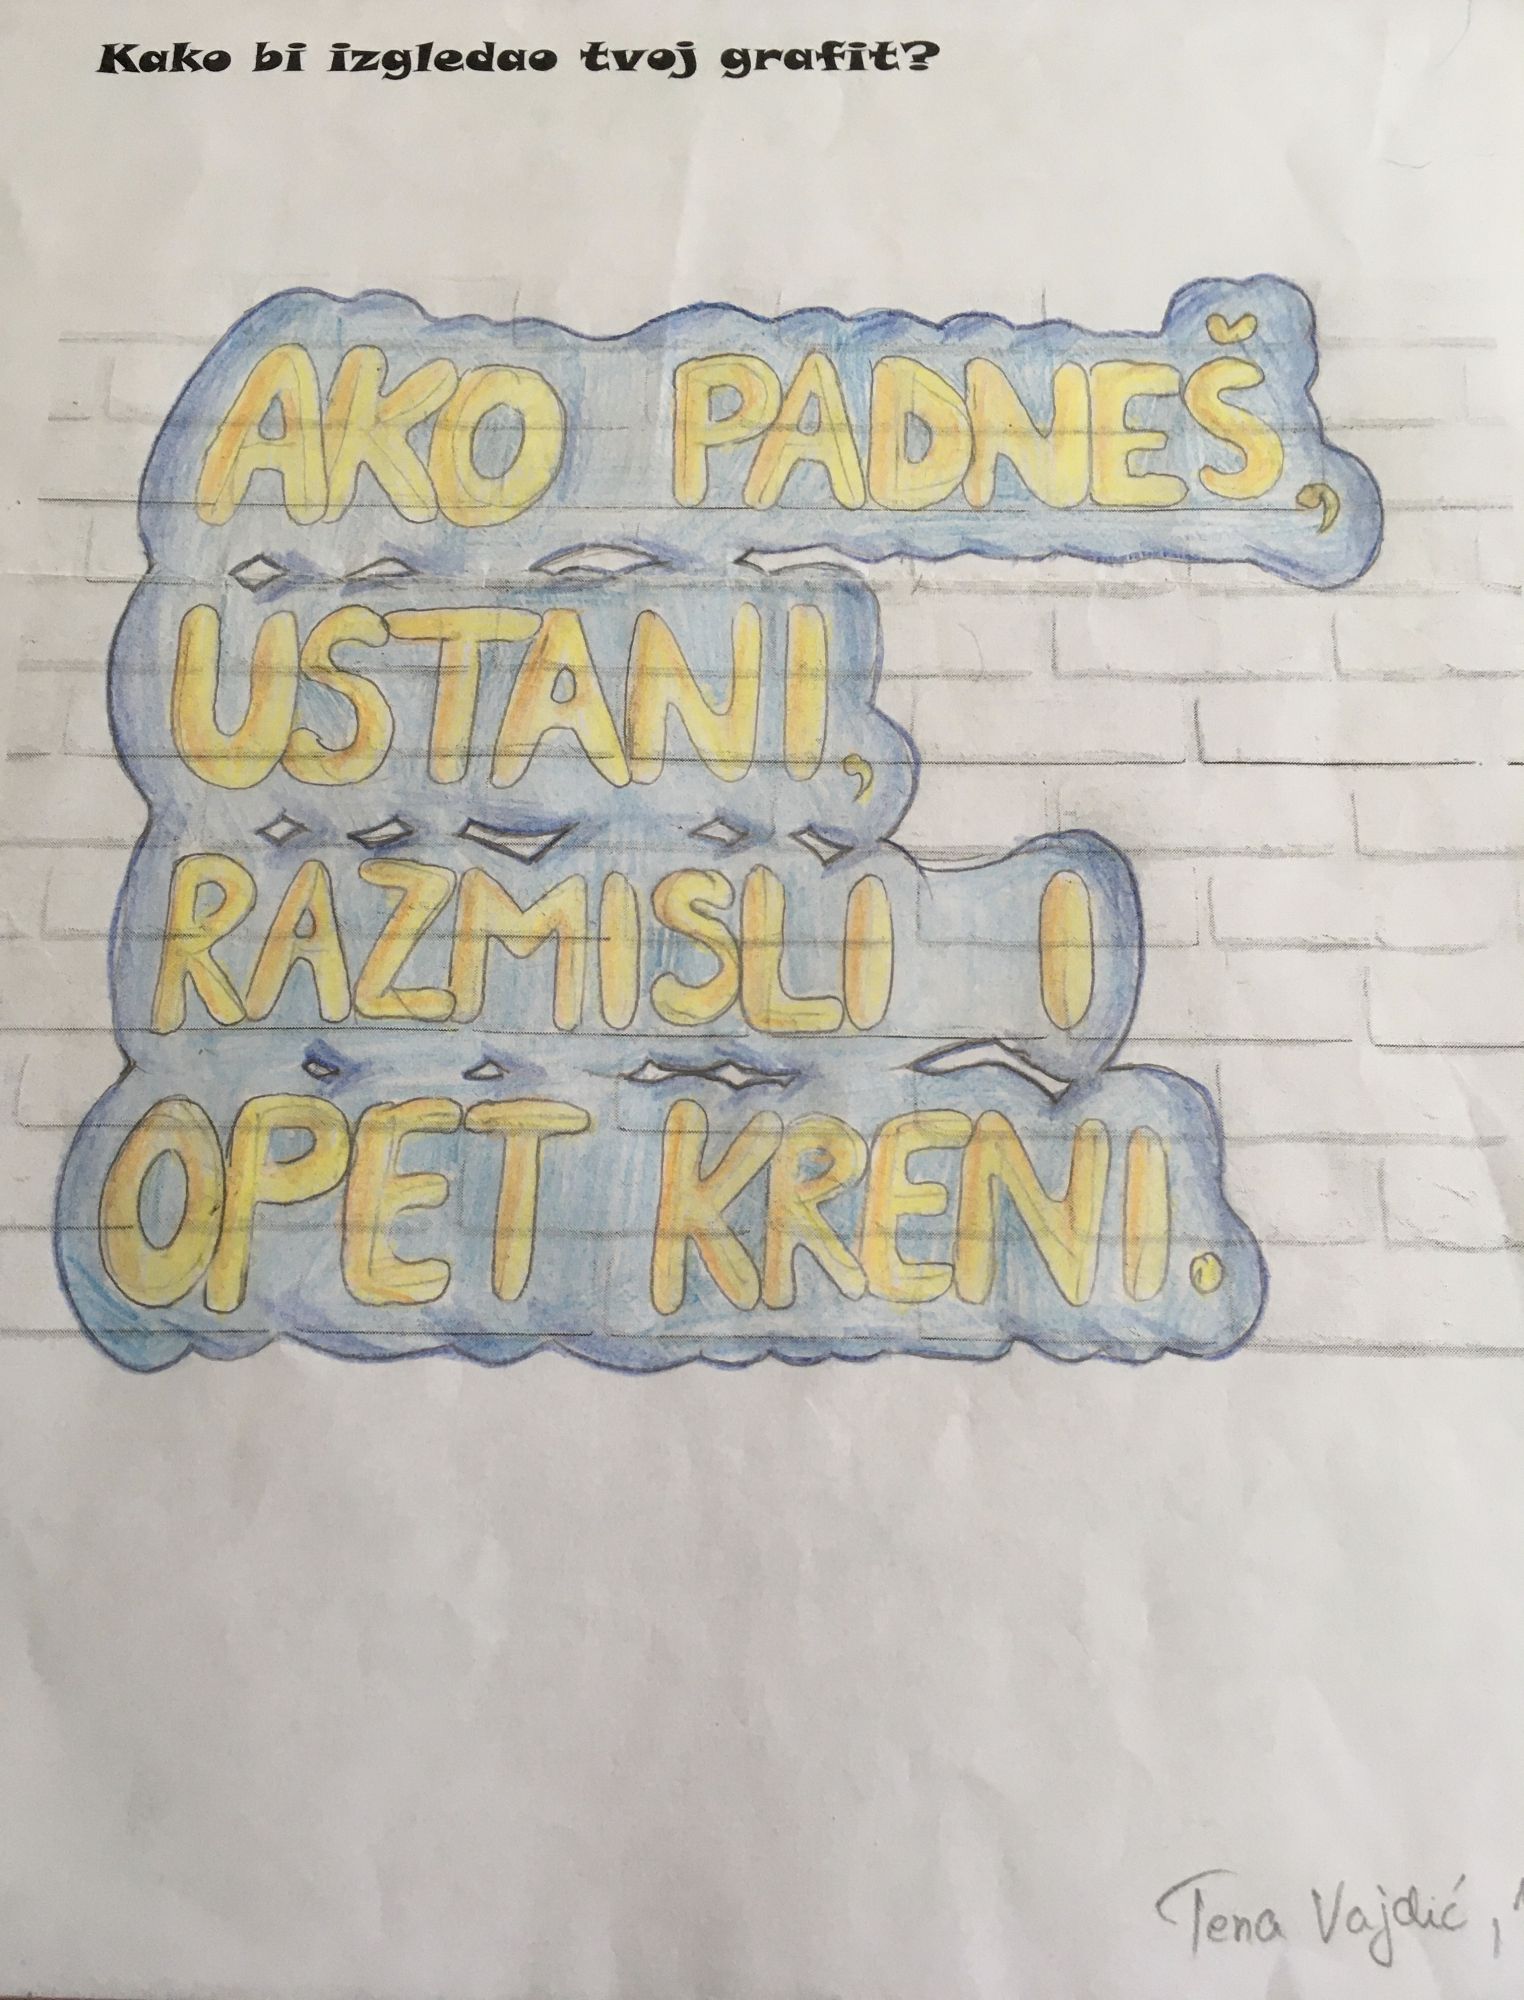 Kako bi izgledao tvoj grafit?
AKO PADNEŠ,
USTANI,
RAZMISLI I
OPET KRENI.
Tena Vajdić,